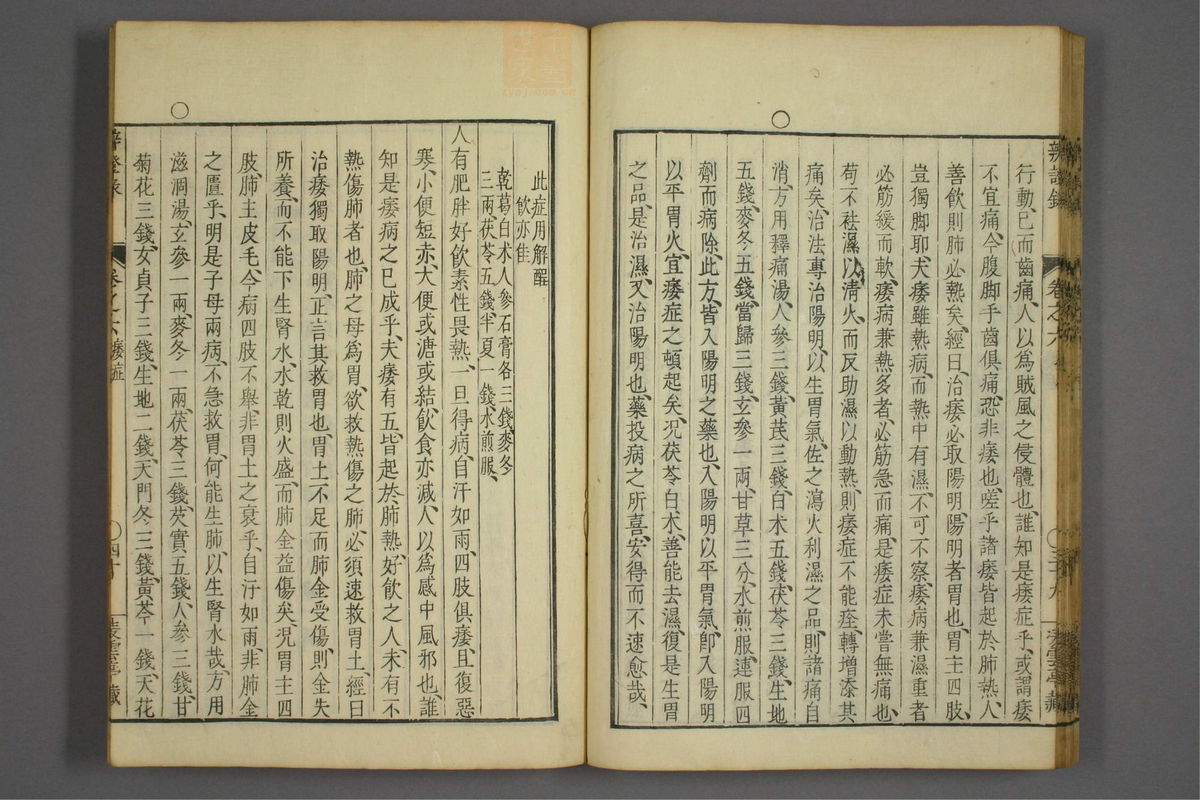 辨證錄
卷之六
三十九
行動、已而齒痛、人以爲賊風之侵體也、誰知是痿症乎、或謂痿
不宜痛、今腹脚手齒俱痛、恐非痿也、嗟乎諸痿皆起於肺熱、人
善飲則肺必熱矣、經曰、治痿必取陽明、陽明者胃也、胃主四肢、
豈獨脚耶、夫痿雖熱病、而熱中有濕、不可不察、痿病兼濕重者
必筋緩而軟、痿病兼熱多者、必筋急而痛、是痿症未嘗無痛也、
苟不祛濕以清火、而反助濕以動熱、則痿症不能痊、轉增添其
痛矣、治法專治陽明、以生胃氣、佐之瀉火利濕之品、則諸痛自
消、方用釋痛湯、人參三錢、黃茋三錢、白术五錢、茯苓三錢、生地
五錢、麥冬五錢、當歸三錢、玄參一兩、甘草三分、水煎服、連服四
劑而病除、此方、皆入陽明之藥也、入陽明以平胃氣、卽入陽明
以平胃火、宜痿症之頓起矣、况茯苓白术、善能去濕、復是生胃
之品、是治濕、又治陽明也、藥投病之所喜、安得而不速愈哉、
此症用解醒
飲亦佳
乾葛白术人參石膏各三錢、麥冬
三兩、茯苓五錢、半夏一錢、水煎服、
人有肥胖好飲、素性畏熱、一旦得病、自汗如雨、四肢俱痿、且復惡
寒、小便短赤、大便或溏或結、飲食亦減、人以爲感中風邪也、誰
知是痿病之已成乎、夫痿有五、皆起於肺熱、好飲之人、未有不
熱傷肺者也、肺之母爲胃、欲救熱傷之肺、必須速救胃土、經曰
治痿獨取陽明、正言其救胃也、胃土不足而肺金受傷、則金失
所養、而不能下生腎水、水乾則火盛、而肺金益傷矣、况胃主四
肢、肺主皮毛、今病四肢不舉、非胃土之衰乎、自汗如雨、非肺金
之匱乎、明是子母兩病、不急救胃、何能生肺、以生腎水哉、方用
滋涸湯、玄參一兩、麥冬一兩、茯苓三錢、芡實五錢、人參三錢、甘
菊花三錢、女貞子三錢、生地二錢、天門冬三錢、黃芩一錢、天花
卷之六 痿症
四十